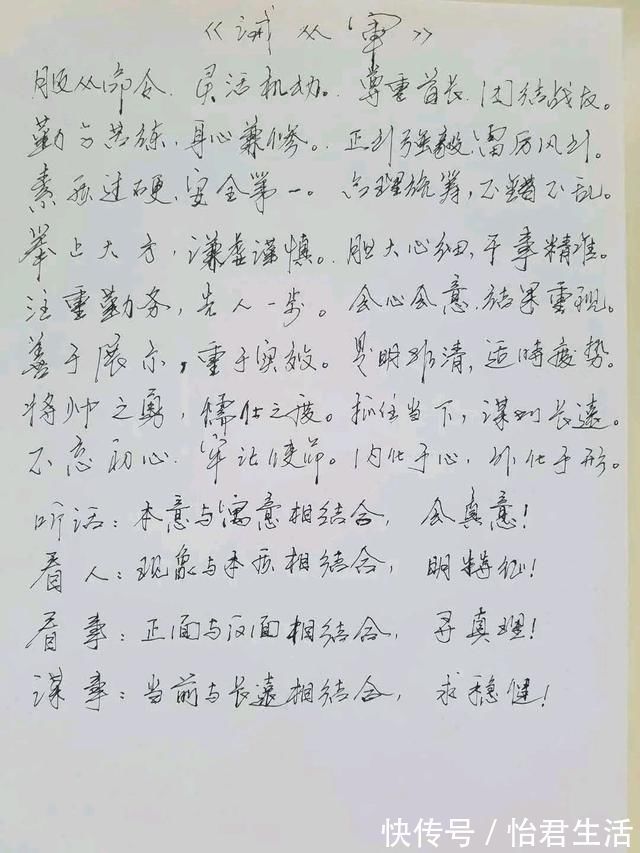 《诫从军》
服从命令.灵活机动。尊重首长.团结战友。
勤学苦练,身心兼修。正刘强毅,雷厉风行。
素质过硬,安全第一。合理统筹,不错不乱。
举止大方,谦虚谨慎。胆大心细,干事精准。
注重勤务,先人一步。会心会意.结果重现。
善于展示,重于实效。是明非清,适時度势。
将帅之勇,儒仕之度。抓住当下,谋划长遠。
不忘初心.牢记使命。内化于心,外化于形。
听话:本意与寓意相结合,会真意!
看人:现象与本质相结合,明特征!
看事:正面与反面相结合,寻真理!
谋事:当前与长遠相结合,求稳健!
快传号/怡君生活